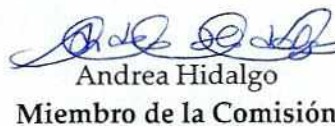 Andrea Hidalgo
Miembro de la Comisión